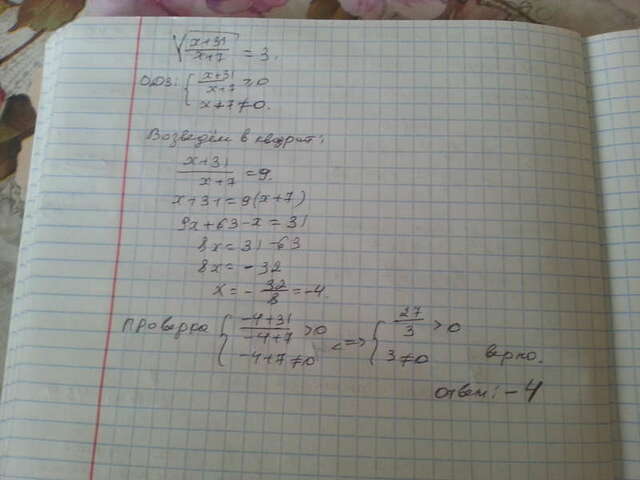 √((x+31)/(x+7)) = 3.
ОДЗ: { (x+31)/(x+7) ≥ 0
x+7≠0.
Возведём в квадрат:
(x+31)/(x+7) = 9.
x+31 = 9(x+7)
9x+63-x = 31
8x = 31-63
8x = -32
x = -32/8 = -4.
Проверка { (-4+31)/(-4+7) > 0 <=> { 27/3 > 0
-4+7≠0 3≠0 верно.
ответ: -4